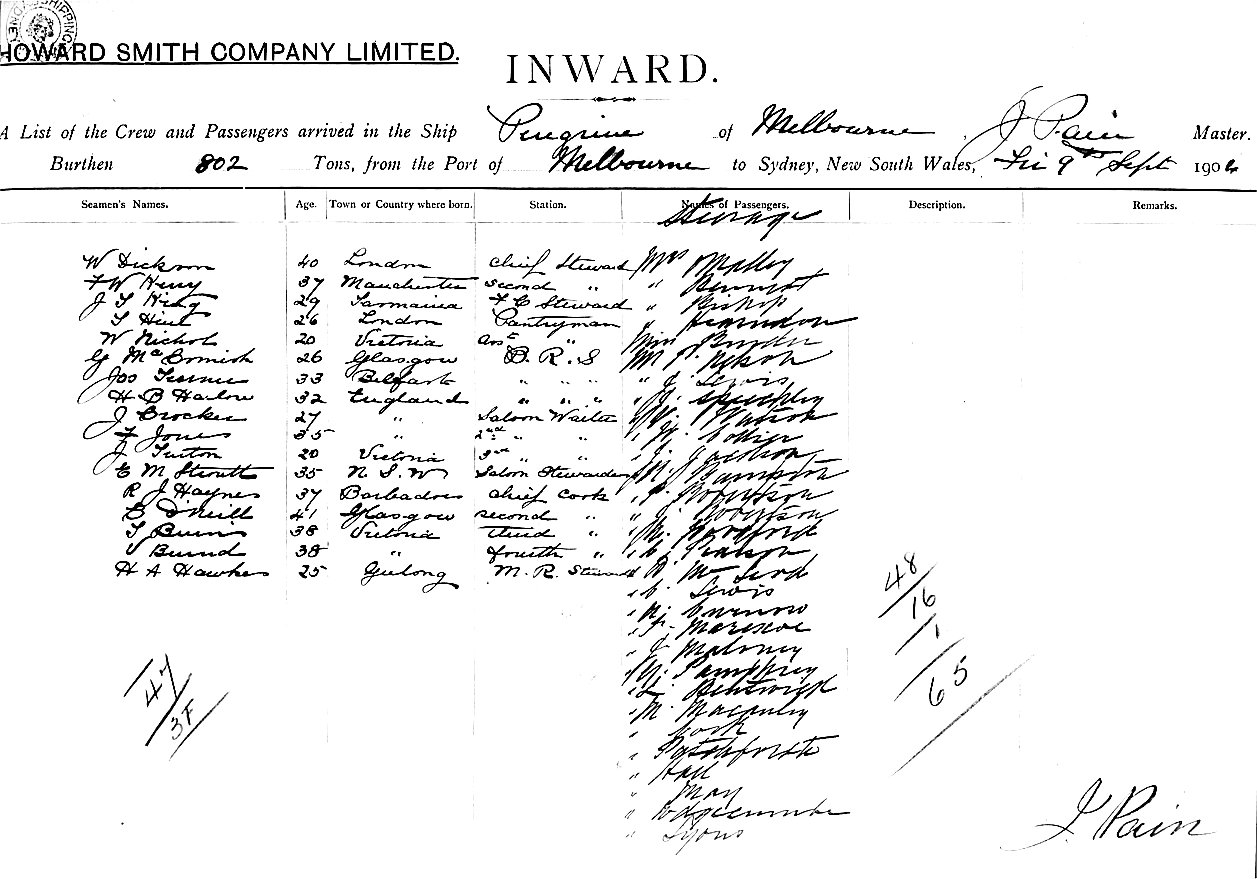 SHIPPING
HOWARD SMITH COMPANY LIMITED.
INWARD.
A List of the Crew and Passengers arrived in the Ship Peregrine of Melbourne, J Pain Master.
Burthen 802 Tons, from the Port of Melbourne to Sydney, New South Wales, Fri 9th Sept 1904
Seamen's Names. Age. Town or Country where born. Station. Names of Passengers. Description. Remarks.
Steerage
W Dickson 40 London Chief Steward Mrs Malley
F W Henry 37 Manchester Second " " Bennet
J T King 29 Tasmania F C Steward " Bishop
T Hine 26 London Pantryman " Hearndon
W Nichol 20 Victoria Asst " Miss
G McCormick 26 Glasgow B. R. S Mr Nelson
Jos 33 Belfast " " " " J Lewis
H B Harlow 32 England " " " "
J Crocker 27 " Saloon Waiter " Watson
F Jones 35 " 2nd " " " Collier
J Turton 20 Victoria 3rd " " "
E M Stroutt 35 N. S. W Saloon Stewardess " Hampton
R J Haynes 37 Barbados Chief Cook " Robertson
B O'Neill 41 Glasgow Second " " Robertson
T Burns 38 Victoria Third " " M. Woodford
38 " Fourth " " Pearson
H A Hawkes 25 Geelong M. R. Steward " McLeod
" Lewis
" Curnow
"
" J Maloney
" Pamphrey
"
" M. Macauley
" Cook
"
" Hall
" May
" Edgecumbe
" Lyons
48
16
1
65
47
37
J. Pain